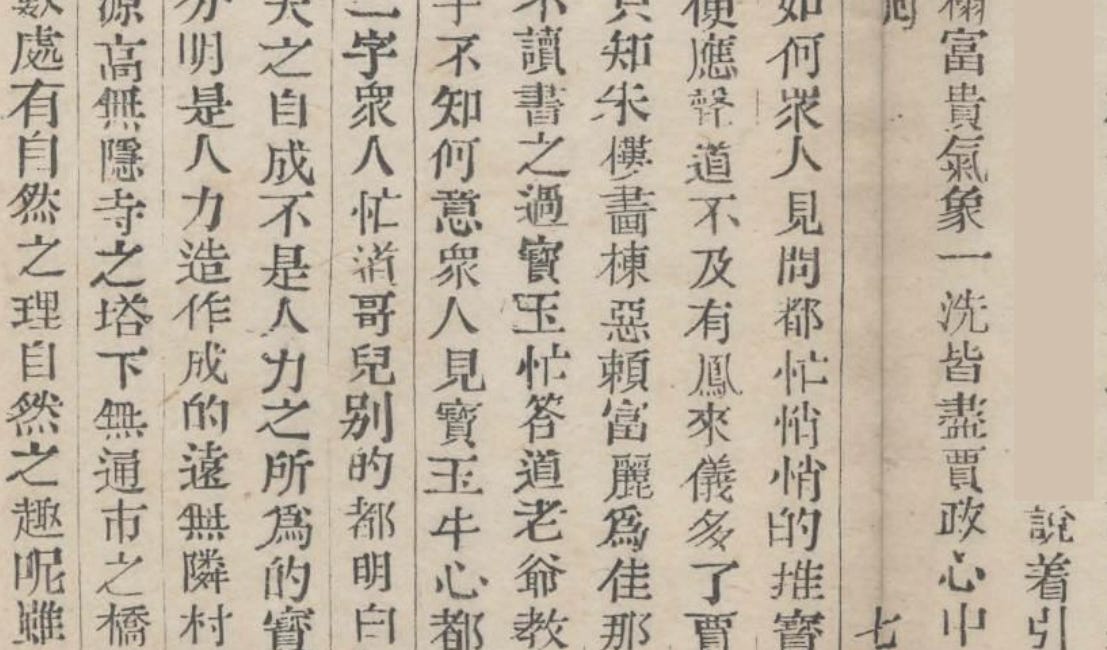 說着引
榻富貴氣象一洗皆盡賈政心中
七
如何衆人見問都忙悄悄的推寶
便應聲道不及有鳳來儀多了賈
只知朱樓畫棟惡頼富麗爲佳那
不讀書之過寶玉忙答道老爺教
不知何意衆人見寶玉牛心都
二字衆人忙道哥兒别的都明白
天之自成不是人力之所爲的寶
分明是人力造作成的遠無隣村
源高無隱寺之塔下無通市之橋
數處有自然之理自然之趣呢雖